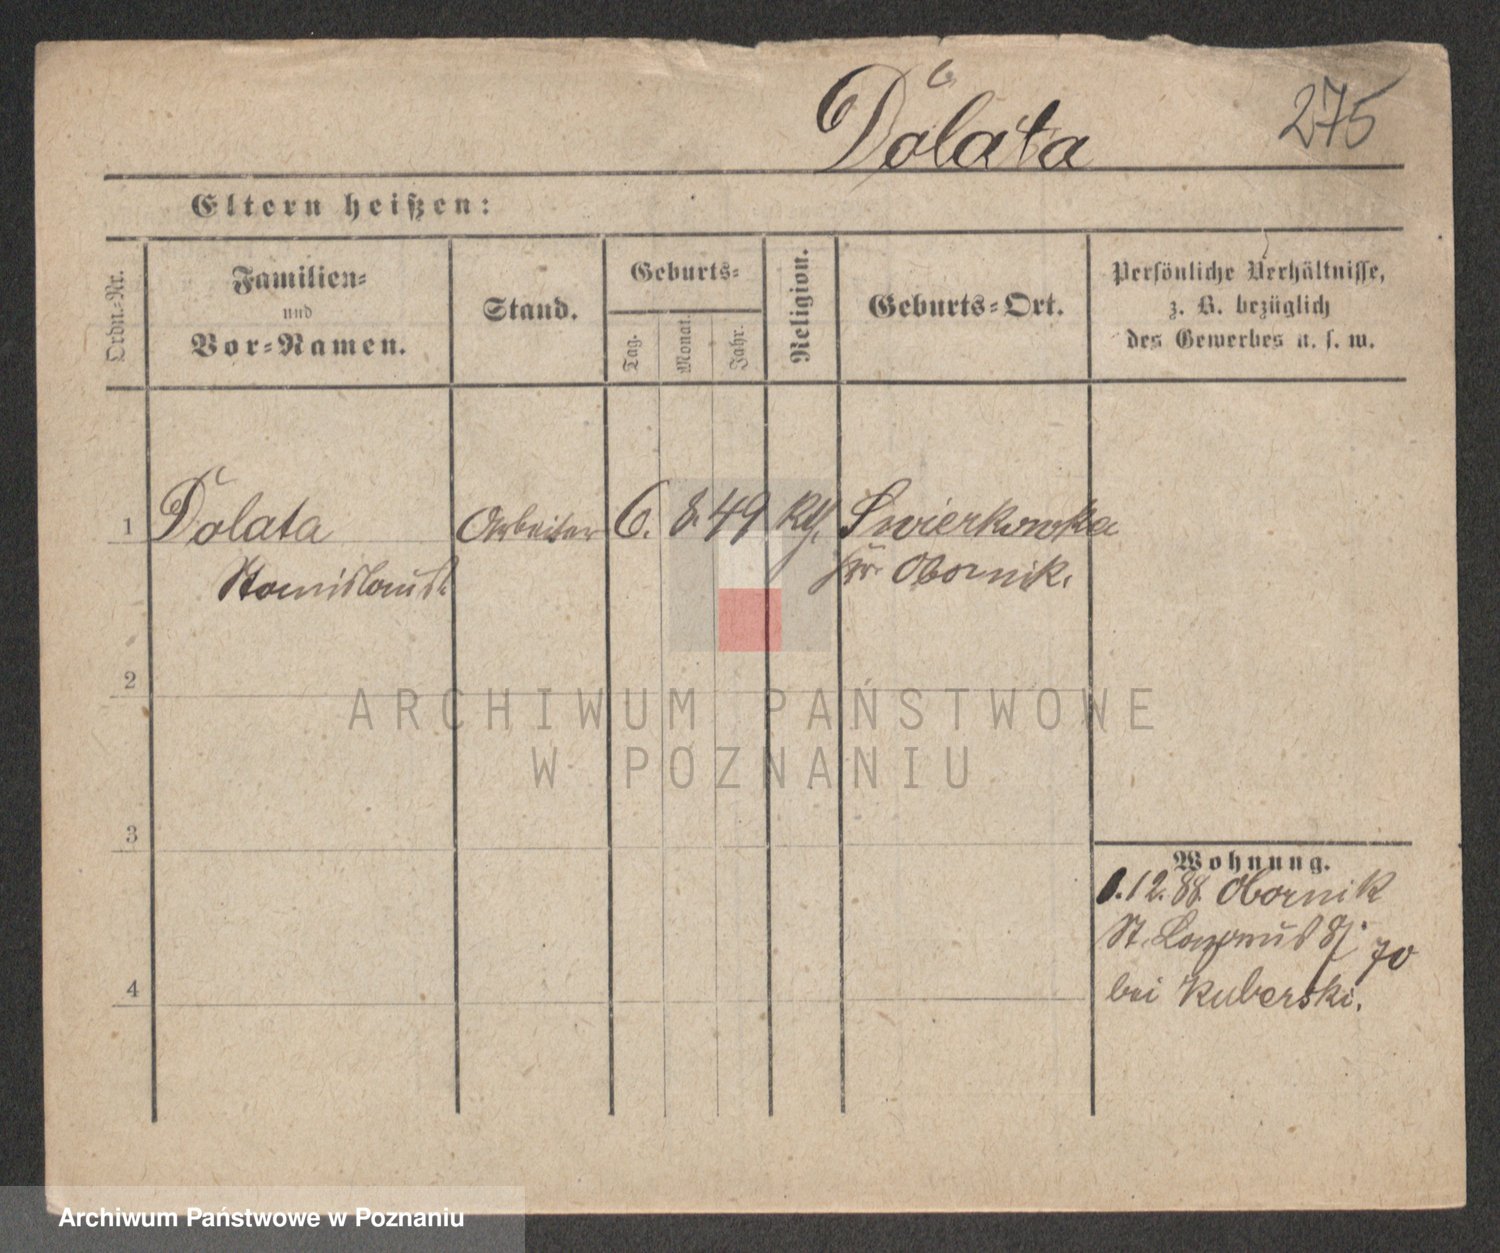 Dolata 275
Eltern heißen:
Ordn.-Nr.
Familien-
und
Vor-Namen.
Stand.
Geburts-
Tag.
Monat.
Jahr.
Religion.
Geburts-Ort.
Persönliche Verhältnisse,
z. B. bezüglich
des Gewerbes u. s. w.
1 Dolata Arbeiter 6. 8. 49 Swierkowka
Stanislaus Kr. Obornik.
2
3
4
Wohnung.
12. 88. Obornik
St. Lazarus 70
bei Kuberski.
ARCHIWUM PAŃSTWOWE
W POZNANIU
Archiwum Państwowe w Poznaniu